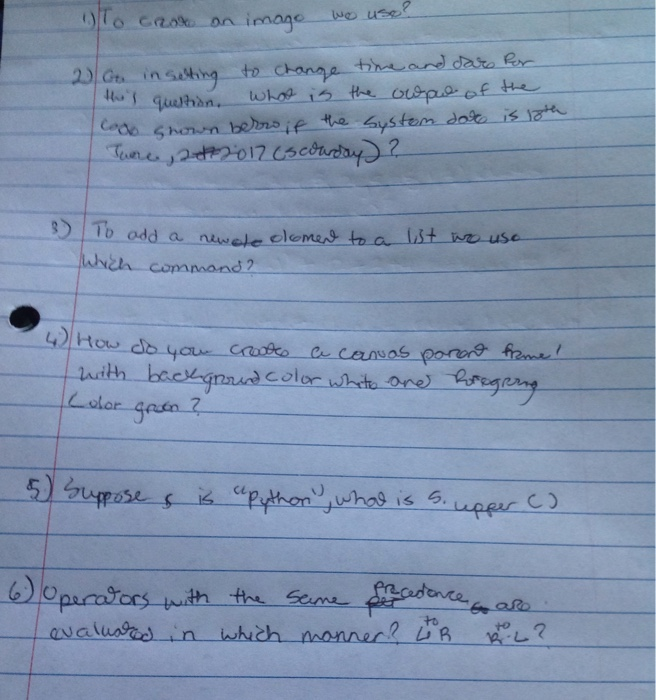 1) To create an image we use?
2) Go in setting to change time and date for
this question. What is the output of the
code shown below if the system date is 18th
June, 2017 (saturday)?
3) To add a new element to a list we use
which command?
4) How do you create a canvas parent frame1
with background color white and
color green?
5) Suppose s is "python", what is s.upper()
6) Operators with the same precedence are
evaluated in which manner? L to R R to L?